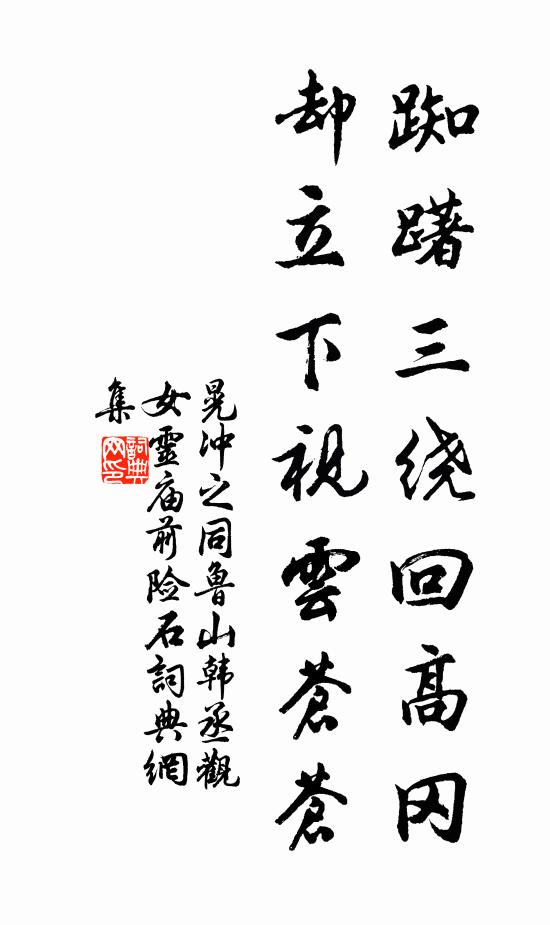 踟躇三绕回高冈
却立下视雲苍苍
晁冲之同鲁山韩丞觀
女靈庙前险石詞典網
集
詞典网印